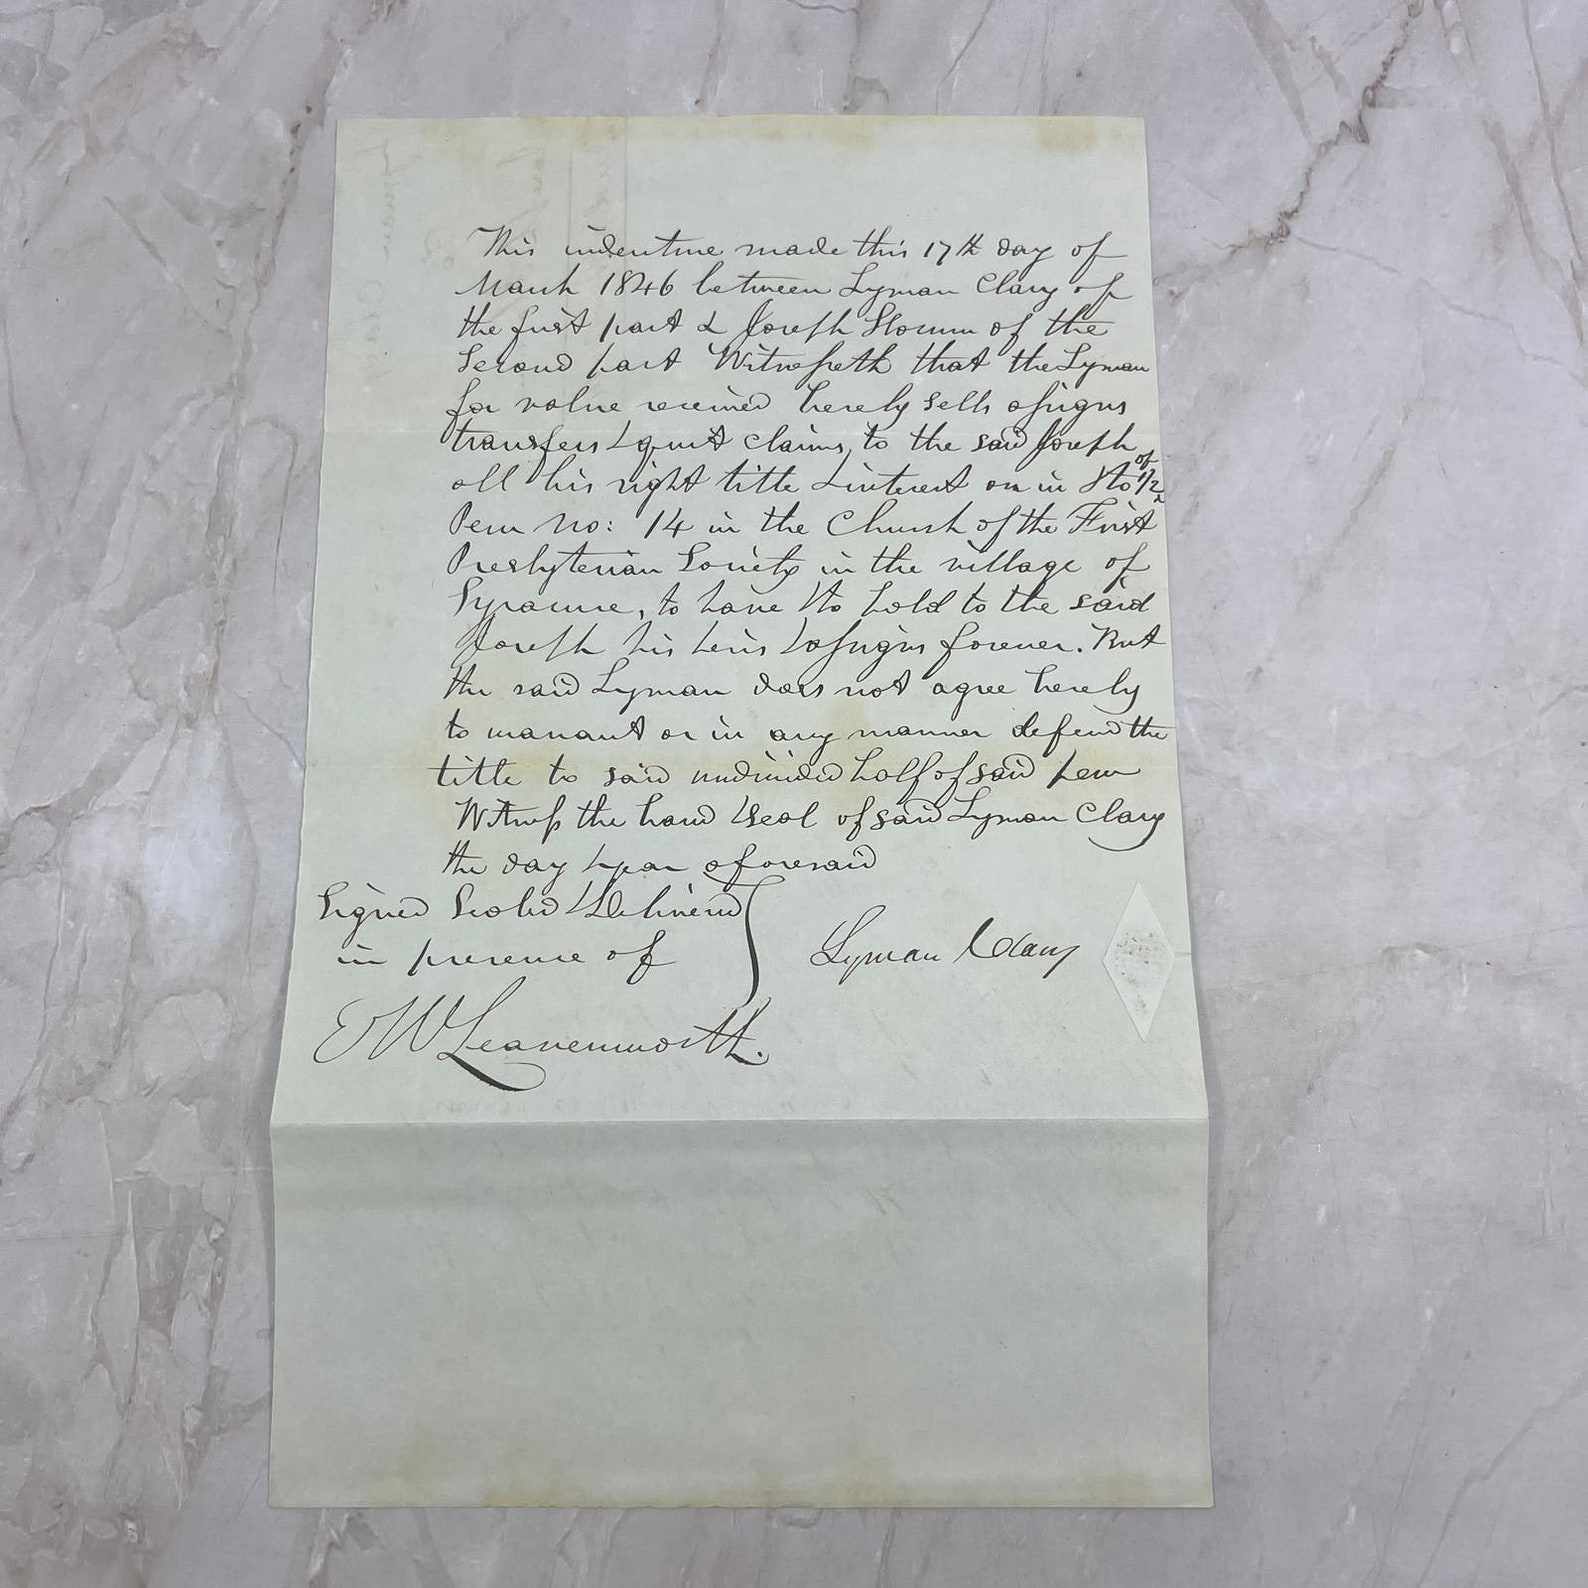 This indenture made this 17th day of
March 1846 between Lyman Clary of
the first part & Joseph Slocum of the
Second part Witnesseth that the Lyman
for value received hereby sells assigns
transfers & quit claims, to the said Joseph
all his right title & interest on in & to 1/2 of
Pew No: 14 in the Church of the First
Presbyterian Society in the village of
Syracuse, to have & to hold to the said
Joseph his heirs & assigns forever. But
the said Lyman does not agree hereby
to warrant or in any manner defend the
title to said undivided half of said pew
Witness the hand & seal of said Lyman Clary
the day & year aforesaid
Signed Sealed & Delivered
in presence of
Lyman Clary
E W Leavenworth.